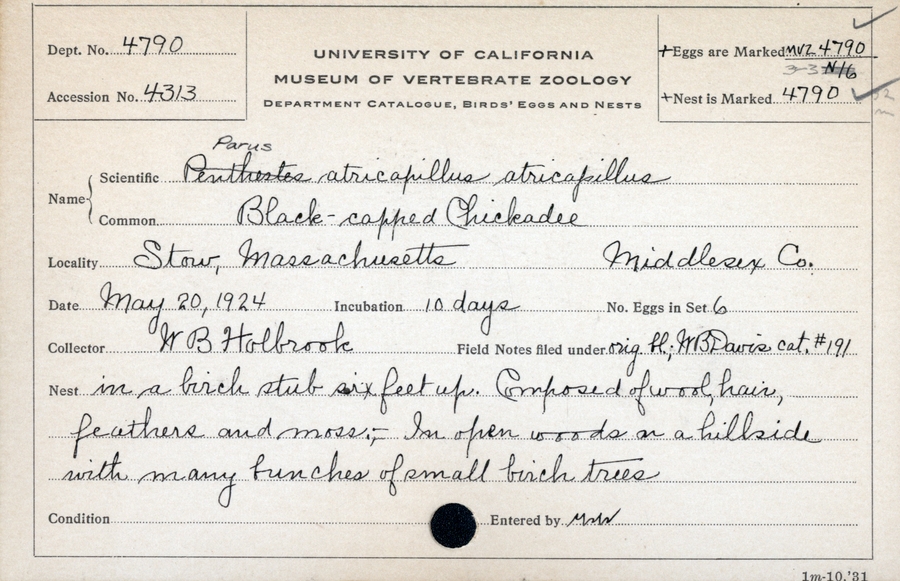 Dept. No. 4790
Accession No. 4313
UNIVERSITY OF CALIFORNIA
MUSEUM OF VERTEBRATE ZOOLOGY
DEPARTMENT CATALOGUE, BIRDS' EGGS AND NESTS
+Eggs are Marked MVZ 4790
3-3 N/6
+Nest is Marked 4790
Parus
Name Scientific Penthestes atricapillus atricapillus
Common Black-capped Chickadee
Locality Stow, Massachusetts Middlesex Co.
Date May 20, 1924 Incubation 10 days No. Eggs in Set 6
Collector W B Holbrook Field Notes filed under orig. bl; WB Davis cat. #191
Nest in a birch stub six feet up. Composed of wool, hair,
feathers and moss;- In open woods on a hillside
with many bunches of small birch trees
Condition Entered by
1m-10,'31